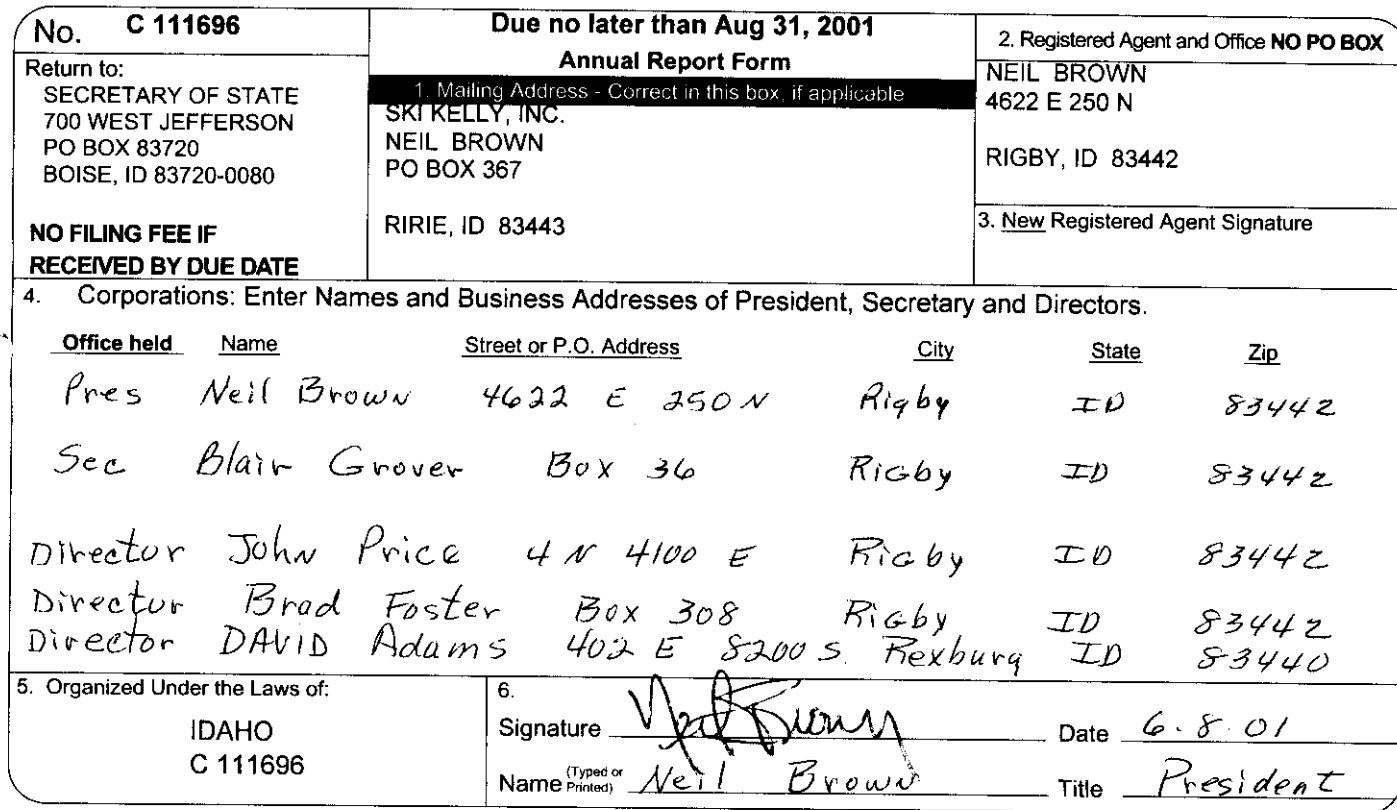 No. C 111696
Return to:
SECRETARY OF STATE
700 WEST JEFFERSON
PO BOX 83720
BOISE, ID 83720-0080
NO FILING FEE IF
RECEIVED BY DUE DATE
Due no later than Aug 31, 2001
Annual Report Form
1. Mailing Address - Correct in this box, if applicable
SKI KELLY, INC.
NEIL BROWN
PO BOX 367
RIRIE, ID 83443
2. Registered Agent and Office NO PO BOX
NEIL BROWN
4622 E 250 N
RIGBY, ID 83442
3. New Registered Agent Signature
4. Corporations: Enter Names and Business Addresses of President, Secretary and Directors.
Office held Name Street or P.O. Address City State Zip
Pres Neil Brown 4622 E 250 N Rigby ID 83442
Sec Blair Grover Box 36 Rigby ID 83442
Director John Price 4 N 4100 E Rigby ID 83442
Director Brad Foster Box 308 Rigby ID 83442
Director DAVID Adams 402 E 8200 S. Rexburg ID 83440
5. Organized Under the Laws of:
IDAHO
C 111696
6.
Signature Neil Brown Date 6.8.01
Name (Typed or Printed) Neil Brown Title President